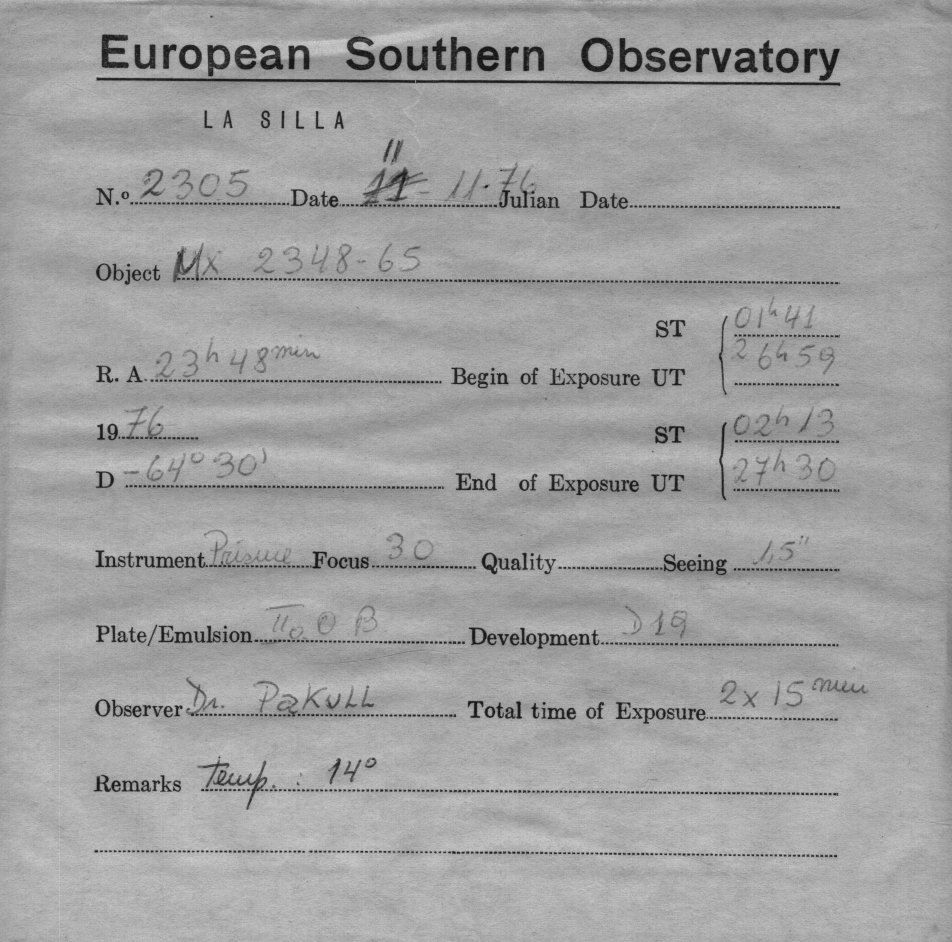 European Southern Observatory
LA SILLA
11
N.º 2305 Date 11-11.76 Julian Date
Object MX 2348-65
ST 01h 41
R. A 23h 48min Begin of Exposure UT 26h 59
1976 ST 02h 13
D -64° 30' End of Exposure UT 27h 30
Instrument Prisme Focus 30 Quality Seeing 1,5"
Plate/Emulsion IIa O B Development D19
Observer Dr. PaKULL Total time of Exposure 2x 15 min
Remarks Temp. : 14°